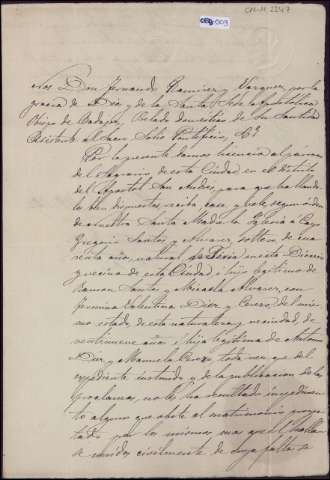 CM-M 2247
Nos Don Fernando Ramirez y Vazquez, por la
gracia de Dios y de la Santa Sede Apostólica
Obispo de Badajoz, Prelado doméstico de Su Santidad
Asistente al Sacro Solio Pontificio, &ª
Por la presente damos licencia al párroco
del Sagrario de esta Ciudad en el distrito
del Apostol San Andrés para que hallando
los bien dispuestos reciba, case, y vele segun orden
de nuestra Santa Madre la Iglesia a
Gregorio Santos y Alvarez, soltero de cua
renta años, natural de Feria en esta Diócesis
y vecino de esta Ciudad é hijo legítimo de
Ramon Santos y Micaela Alvarez, con
Fermina Valentina Diaz y Cuero, del mis
mo estado, de esta naturaleza y vecindad de
veintinueve años é hija legítima de Antonio
Diaz y Manuela Cuero toda vez que del
expediente instruido y de la publicacion de las
Proclamas, no les ha resultado impedimen
to alguno que obste al matrimonio proyec
tado por los mismos una vez que se hallan
unidos civilmente de cuya falta se